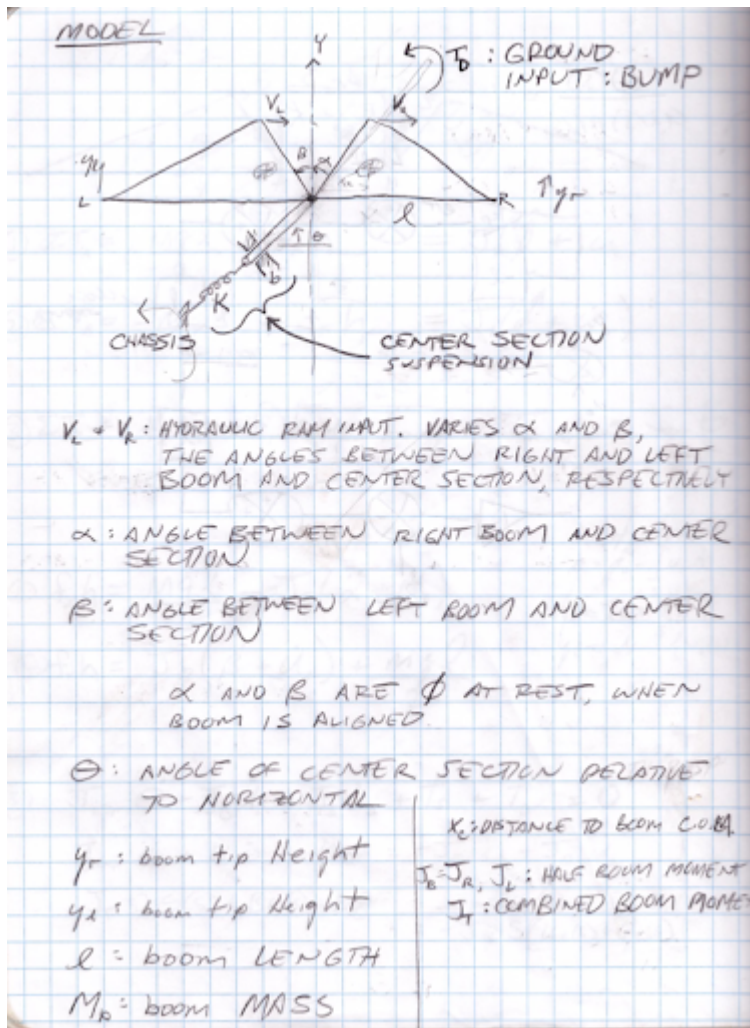 MODEL
Y
T_D : GROUND
INPUT : BUMP
V_L
V_R
β
α
y_l
L
R
↑ y_r
l
θ
b
K
CHASSIS
CENTER SECTION
SUSPENSION
V_L + V_R : HYDRAULIC RAM INPUT. VARIES α AND β,
THE ANGLES BETWEEN RIGHT AND LEFT
BOOM AND CENTER SECTION, RESPECTIVELY
α : ANGLE BETWEEN RIGHT BOOM AND CENTER
SECTION
β : ANGLE BETWEEN LEFT BOOM AND CENTER
SECTION
α AND β ARE Ø AT REST, WHEN
BOOM IS ALIGNED.
θ : ANGLE OF CENTER SECTION RELATIVE
TO HORIZONTAL
X_c : DISTANCE TO BOOM C.O.M.
y_r : boom tip Height
J_B = J_R, J_L : HALF BOOM MOMENT
J_T : COMBINED BOOM MOME
y_l : boom tip Height
l = boom LENGTH
M_B : boom MASS